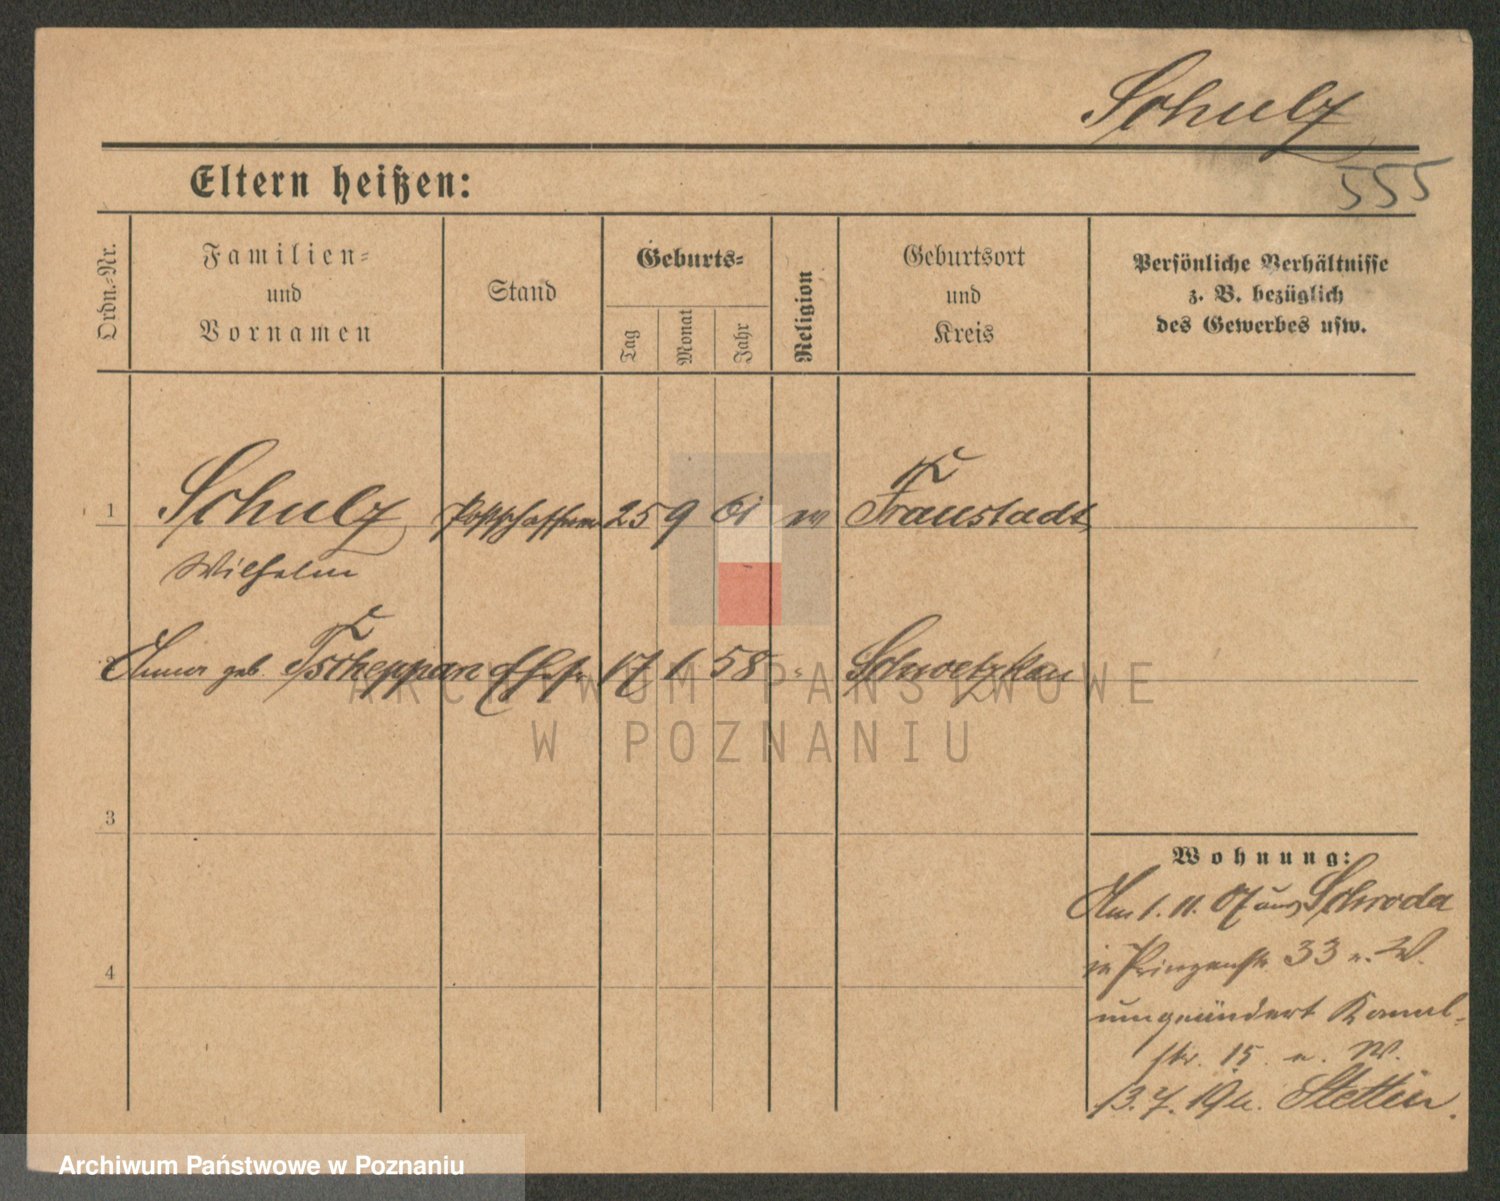 Schulz
555
Eltern heißen:
Ordn.-Nr.
Familien-
und
Vornamen
Stand
Geburts-
Tag
Monat
Jahr
Religion
Geburtsort
und
Kreis
Persönliche Verhältnisse
z. B. bezüglich
des Gewerbes usw.
1 Schulz 25 9 61 Fraustadt
Wilhelm
2 Anna geb. Tscheppan Ehefr 17 1 58 " Schwetzkau
3
4
Wohnung:
Am 1. 11. 07 aus Schroda
in Prinzenstr. 33 n. W.
umgeändert Kanal-
str. 15. n. W.
13. 7. 19 n. Stettin.
ARCHIWUM PAŃSTWOWE
W POZNANIU
Archiwum Państwowe w Poznaniu